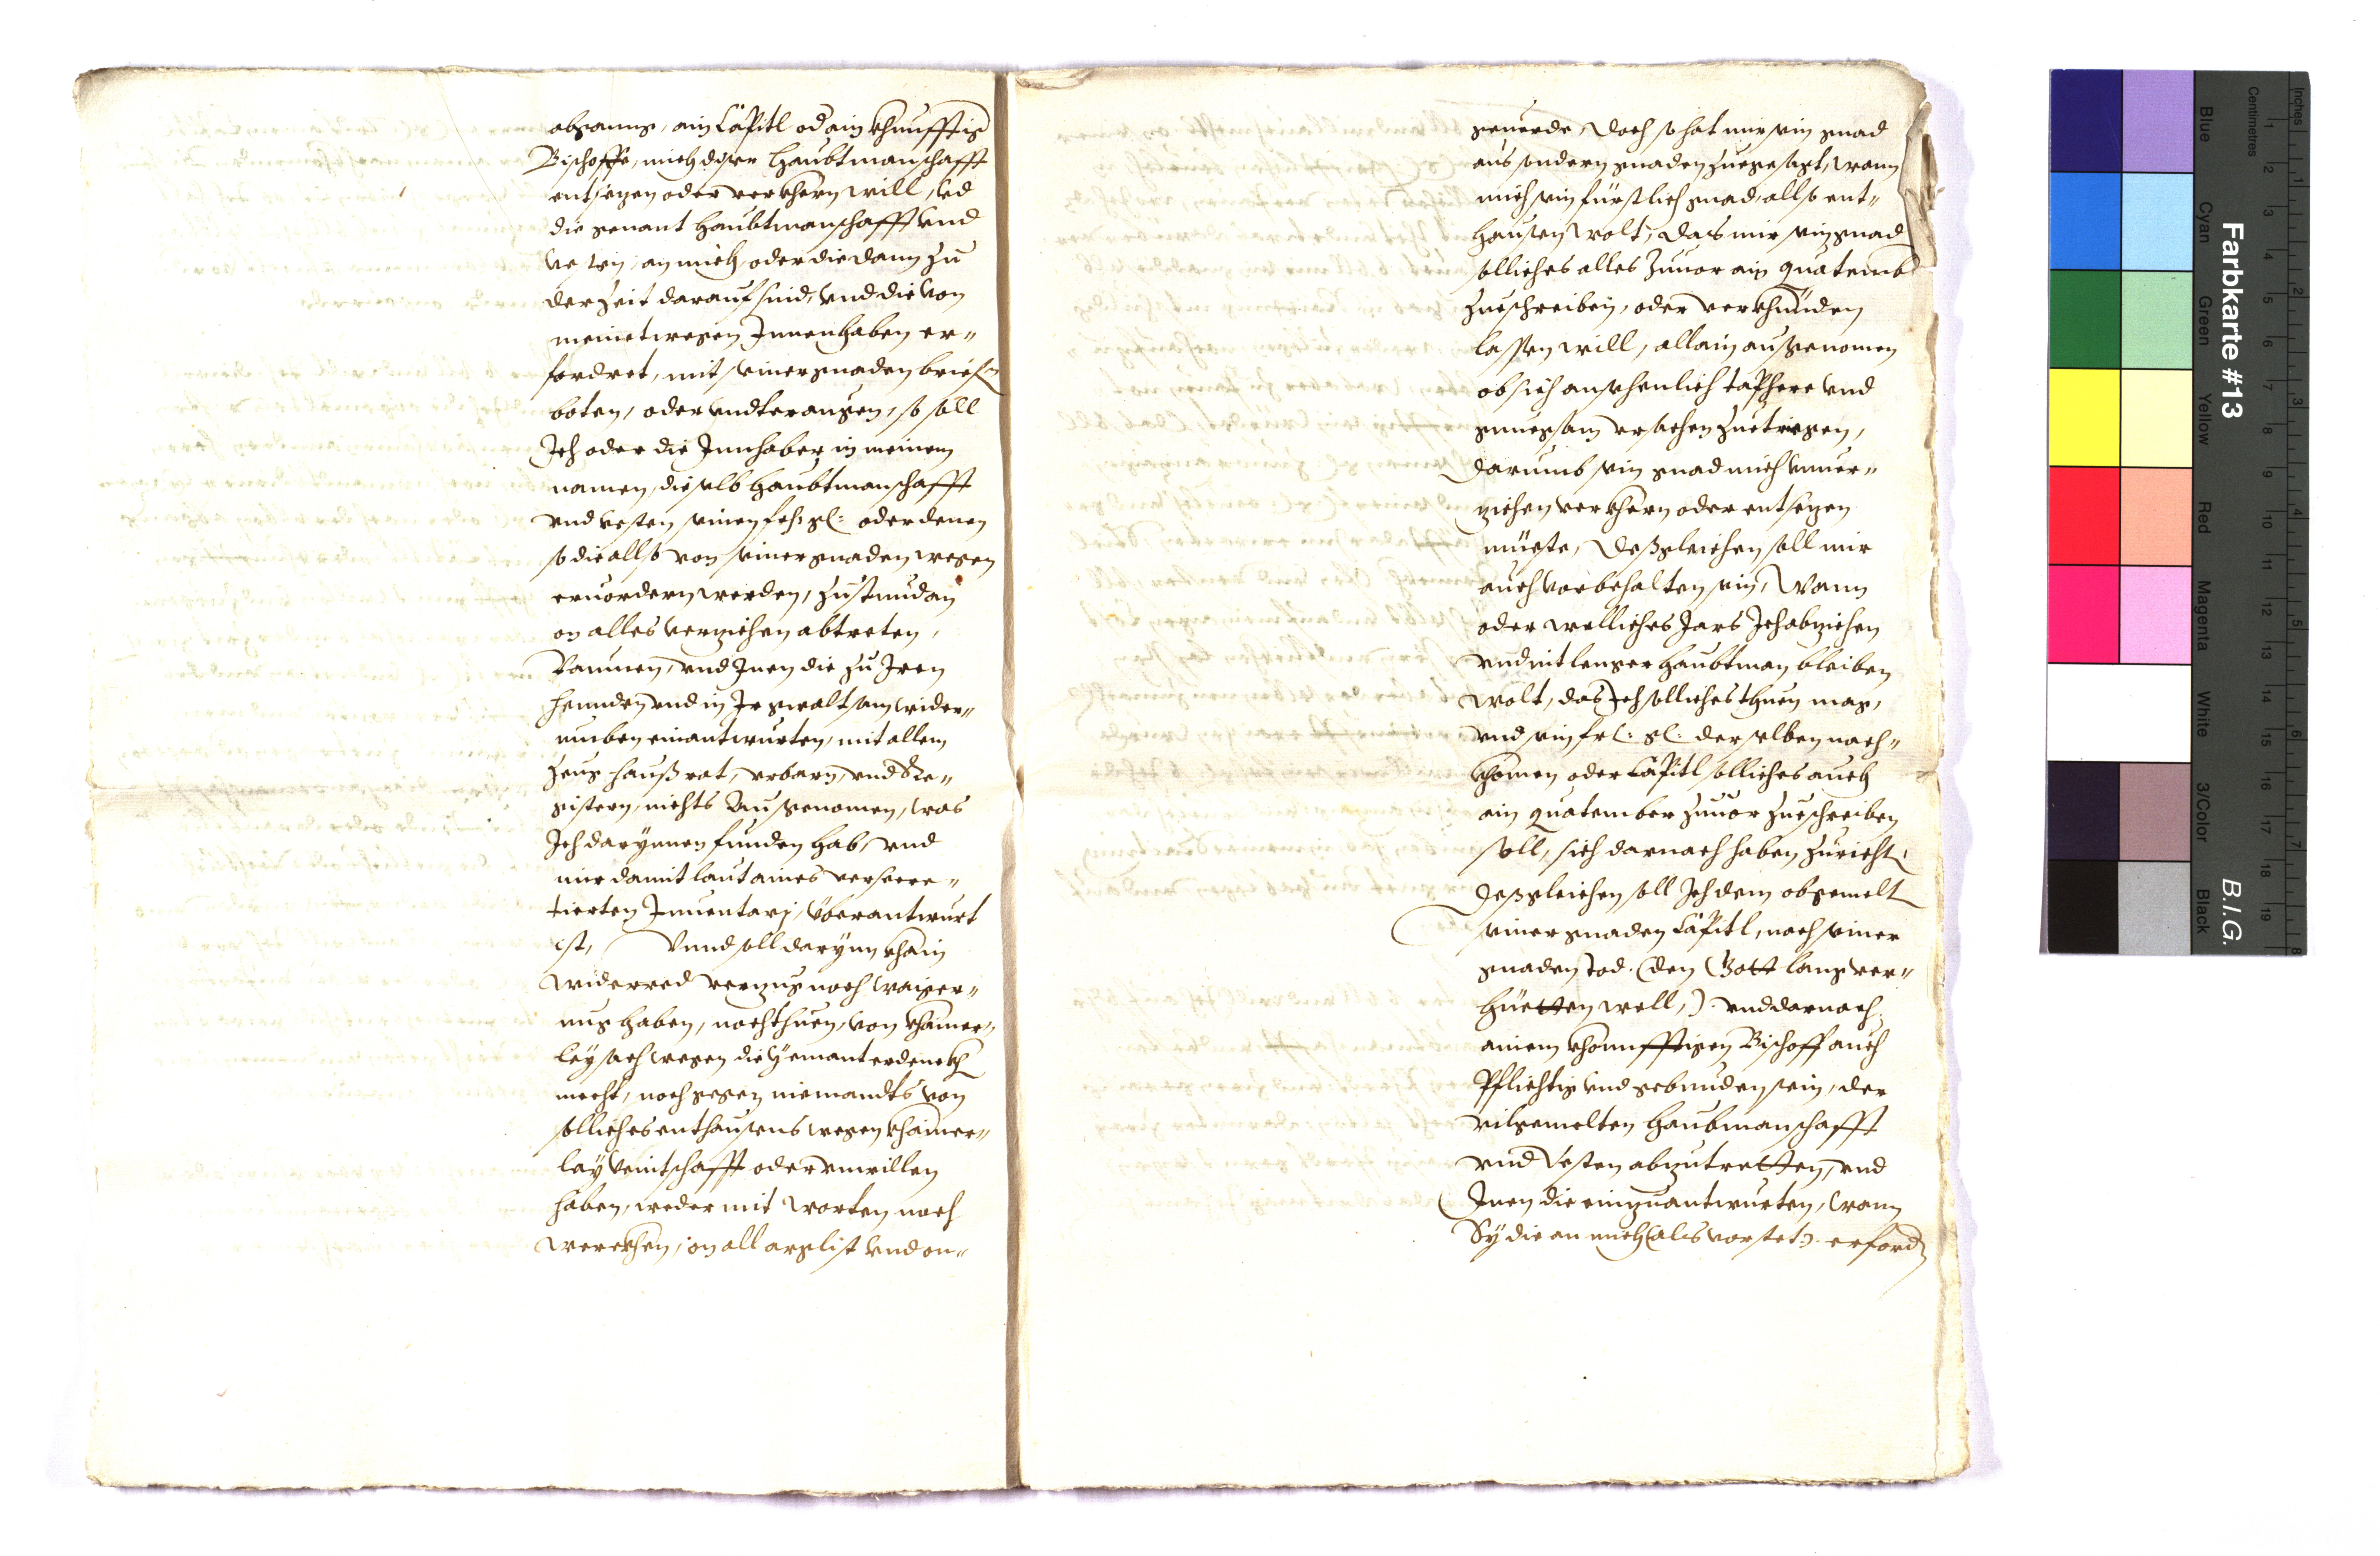 abganng, ain Cäpitl od ain khunfftig
Bischoffe, mich diser Haubtmanschafft
entsezen oder verkhern will, vnd
die genant Haubtmanschafft vnd
Vesten, an mich, oder die dann zu
der zeit darauf sind, vnd die von
meinetwegen Innenhaben er-
fordret, mit seiner gnaden briefen
boten, oder vndterangen, so soll
Ich oder die Innhaber in meinem
namen, dieselb Haubtmanschafft
vnd vesten seinen fr: gl: oder denen
so die allso von seiner gnaden wegen
eruordern werden, zustundan
on alles verziehen abtreten,
Raumen, vnd Inen die zu Iren
hennden vnd in Ir gwaltsam wider-
umben einantwurten, mit allem
zeug haußrat, vrbarn, vnd Re-
gistern, nichts außgenomen, was
Ich darynnen funden hab, vnd
mir damit laut aines versecre-
tierten Inuentarj, überantwurt
ist, Vnnd soll darynn khain
widerred verzug noch waiger-
nus haben, noch thuen, von khainer-
ley sach wegen die yemant erdenckh
mecht, noch gegen niemandts von
solliches enthausens wegen khainer-
lay veintschafft oder vnwillen
haben, weder mit worten noch
werckhen, on all arglist vnd on-
geuerde, Doch so hat mir sein gnad
aus sondern gnaden zuegesagt, wann
mich sein fürstlich gnad, allso ent-
hausen wolt, das mir sein gnad
solliches alles zuuor ain quatemb
zueschreiben, oder verkhünden
lassen will, allain außgenomen
ob sich ansehenlich taphere vnd
gnuegsam vrsachen zuetriegen,
darumb sein gnad mich vnuer-
ziehen verkhern oder entsezen
müeste, Deßgleichen soll mir
auch vorbehalten sein, Wann
oder wolliches Jars Ich abziehen
vnd nit lenger Haubtman bleiben
wolt, das Ich solliches thuen mag,
vnd sein frl: gl: derselben nach-
khomen oder Cäpitl solliches auch
ain quatember zuuor zueschreiben
soll, sich darnach haben zuricht,
Deßgleichen soll Ich dem obgemelt
seiner gnaden Cäpitl, nach seiner
gnaden Tod. (den Gott lang ver-
hüetten well,). vnd darnach
ainem khonnfftigen Bischoff auch
Pflichtig vnd gebunden sein, der
vilgemelten Haubmanschafft
vnd Vesten abzutretten, vnd
Inen die einzuantwurten, wann
Sy die an mich (als vorstet). erford
Farbkarte #13
B.I.G.
Inches
Centimetres
1 2 3 4 5 6 7 8 9 10 11 12 13 14 15 16 17 18 19
1 2 3 4 5 6 7 8
Blue
Cyan
Green
Yellow
Red
Magenta
White
3/Color
Black